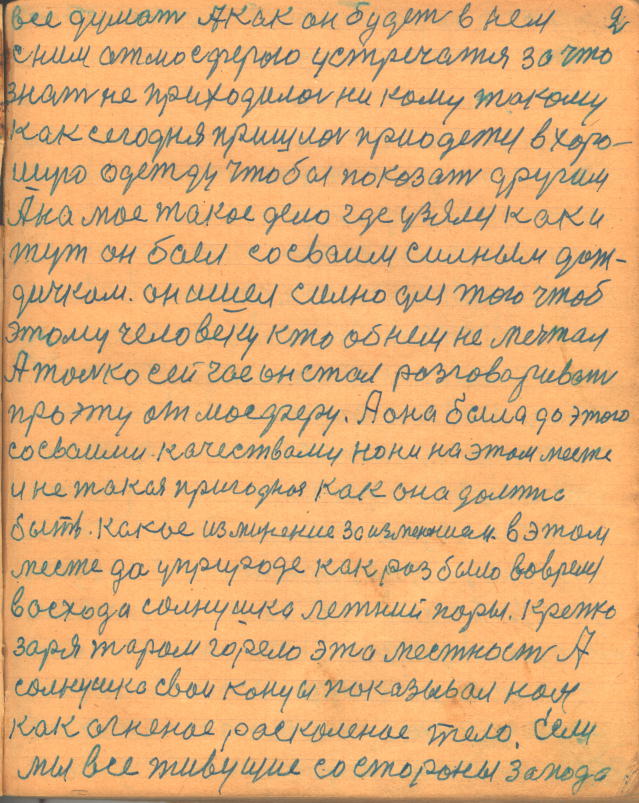 все думат А как он будет в нем 2
с ним атмосферою устречатя за что
знат не приходилос ни кому такому
как сегодня пришлос приодеты в хоро-
шую одежду чтобы показат другим
А на мое такое дело где узялся как и
тут он был со сваим силным дож-
дичком. он ишел силно для того чтоб
этому человеку кто об нем не мечтал
А толко сейчас он стал разговариват
про эту атмосферу. А она была до этого
со сваими качествами но ни на этом месте
и не такая пригодная как она должна
быть. Какое изминение за изменниам. в этом
месте да у природе как раз было во время
васхода солнушка летний поры. Крепко
заря жаром горело эта местност А
солнушко свои конусы показывал нам
как огненое, раскаленое тело. Если
мы все живущие со стороны запада